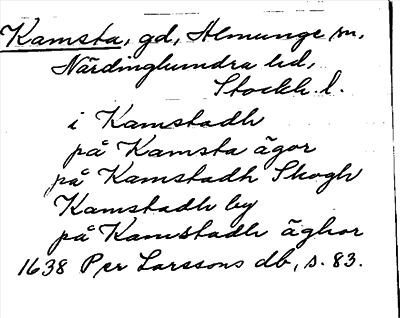 Kamsta, gd, Almunge sn,
Närdinghundra hd,
Stockh. l.
i Kamstadh
på Kamsta ägor
på Kamstadh Skogh
Kamstadh by
på Kamstadh äghor
1638 Per Larssons db, s. 83.